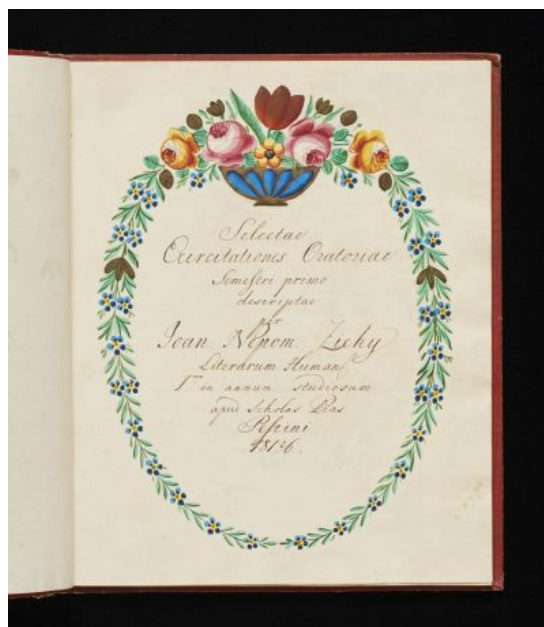 Selectae
Exercitationes Oratoriae
Semestri primo
descriptae
per
Joan. Nepom. Zichy
Literarum Human.
in annum studiosum
apud Scholas Pias
Pestini